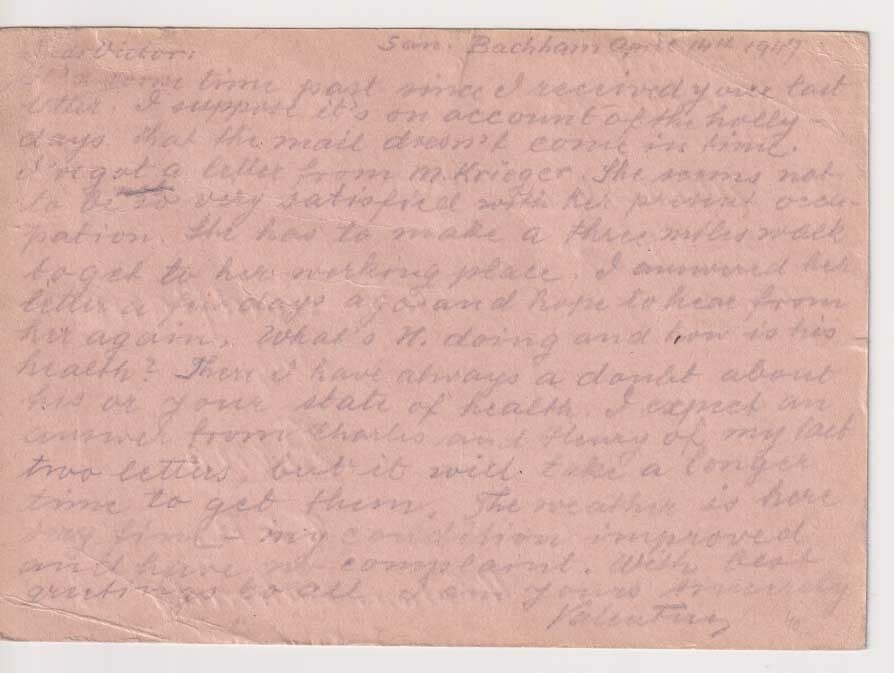 San. Bachham April 14th 1947
Dear Victor:
some time past since I received your last
letter. I suppose it's on account of the holly-
days that the mail doesn't come in time.
I've got a letter from M. Krieger. She seems not
to be so very satisfied with her present occu-
pation. She has to make a three miles walk
to get to her working place. I answered her
letter a few days ago and hope to hear from
her again. What's H. doing and how is his
health? There I have always a doubt about
his or your state of health. I expect an
answer from Charles and Henry of my last
two letters, but it will take a longer
time to get them. The weather is here
very fine – my condition improved
and I have no complaint. With best
greetings to all, I am yours sincerely
Valentin